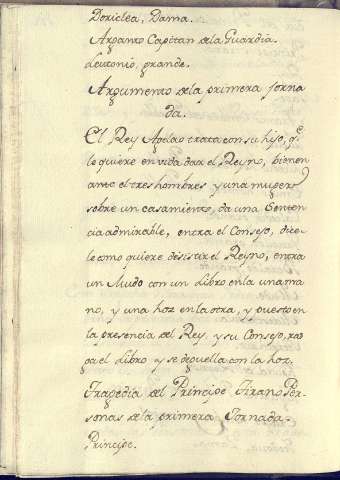 Doriclea, Dama.
Arpanto Capitan de la Guardia.
Leutonio, grande.
Argumento de la primera jorna
da.
El Rey Agelao trata con su hijo, q.e
le quiere en vida dar el Reyno, bienen
ante el tres hombres y una muger
sobre un casamiento, da una Senten
cia admirable, entra el Consejo, dice
le como quiere desistir el Reyno, entra
un Mudo con un Libro en la una ma
no, y una hoz en la otra, y puesto en
la presencia del Rey, y su Consejo, ras
ga el Libro y se deguella con la hoz.
Tragedia del Principe Tirano Per-
sonas de la primera Jornada.
Principe.